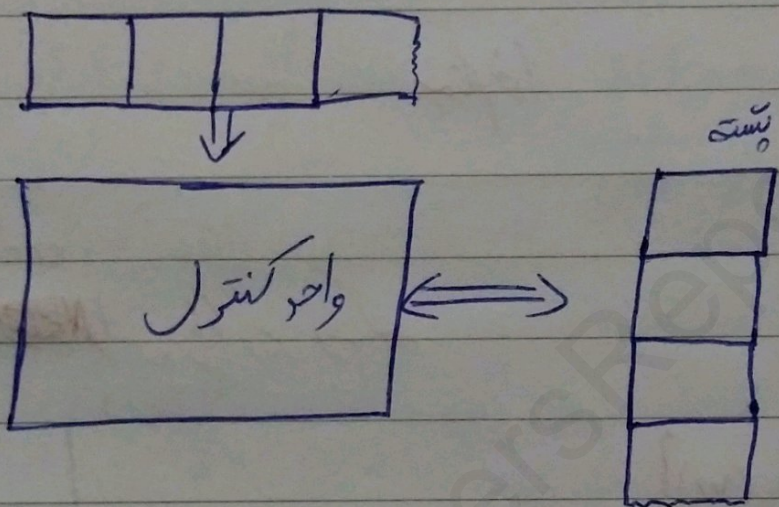 پشته
واحد کنترل